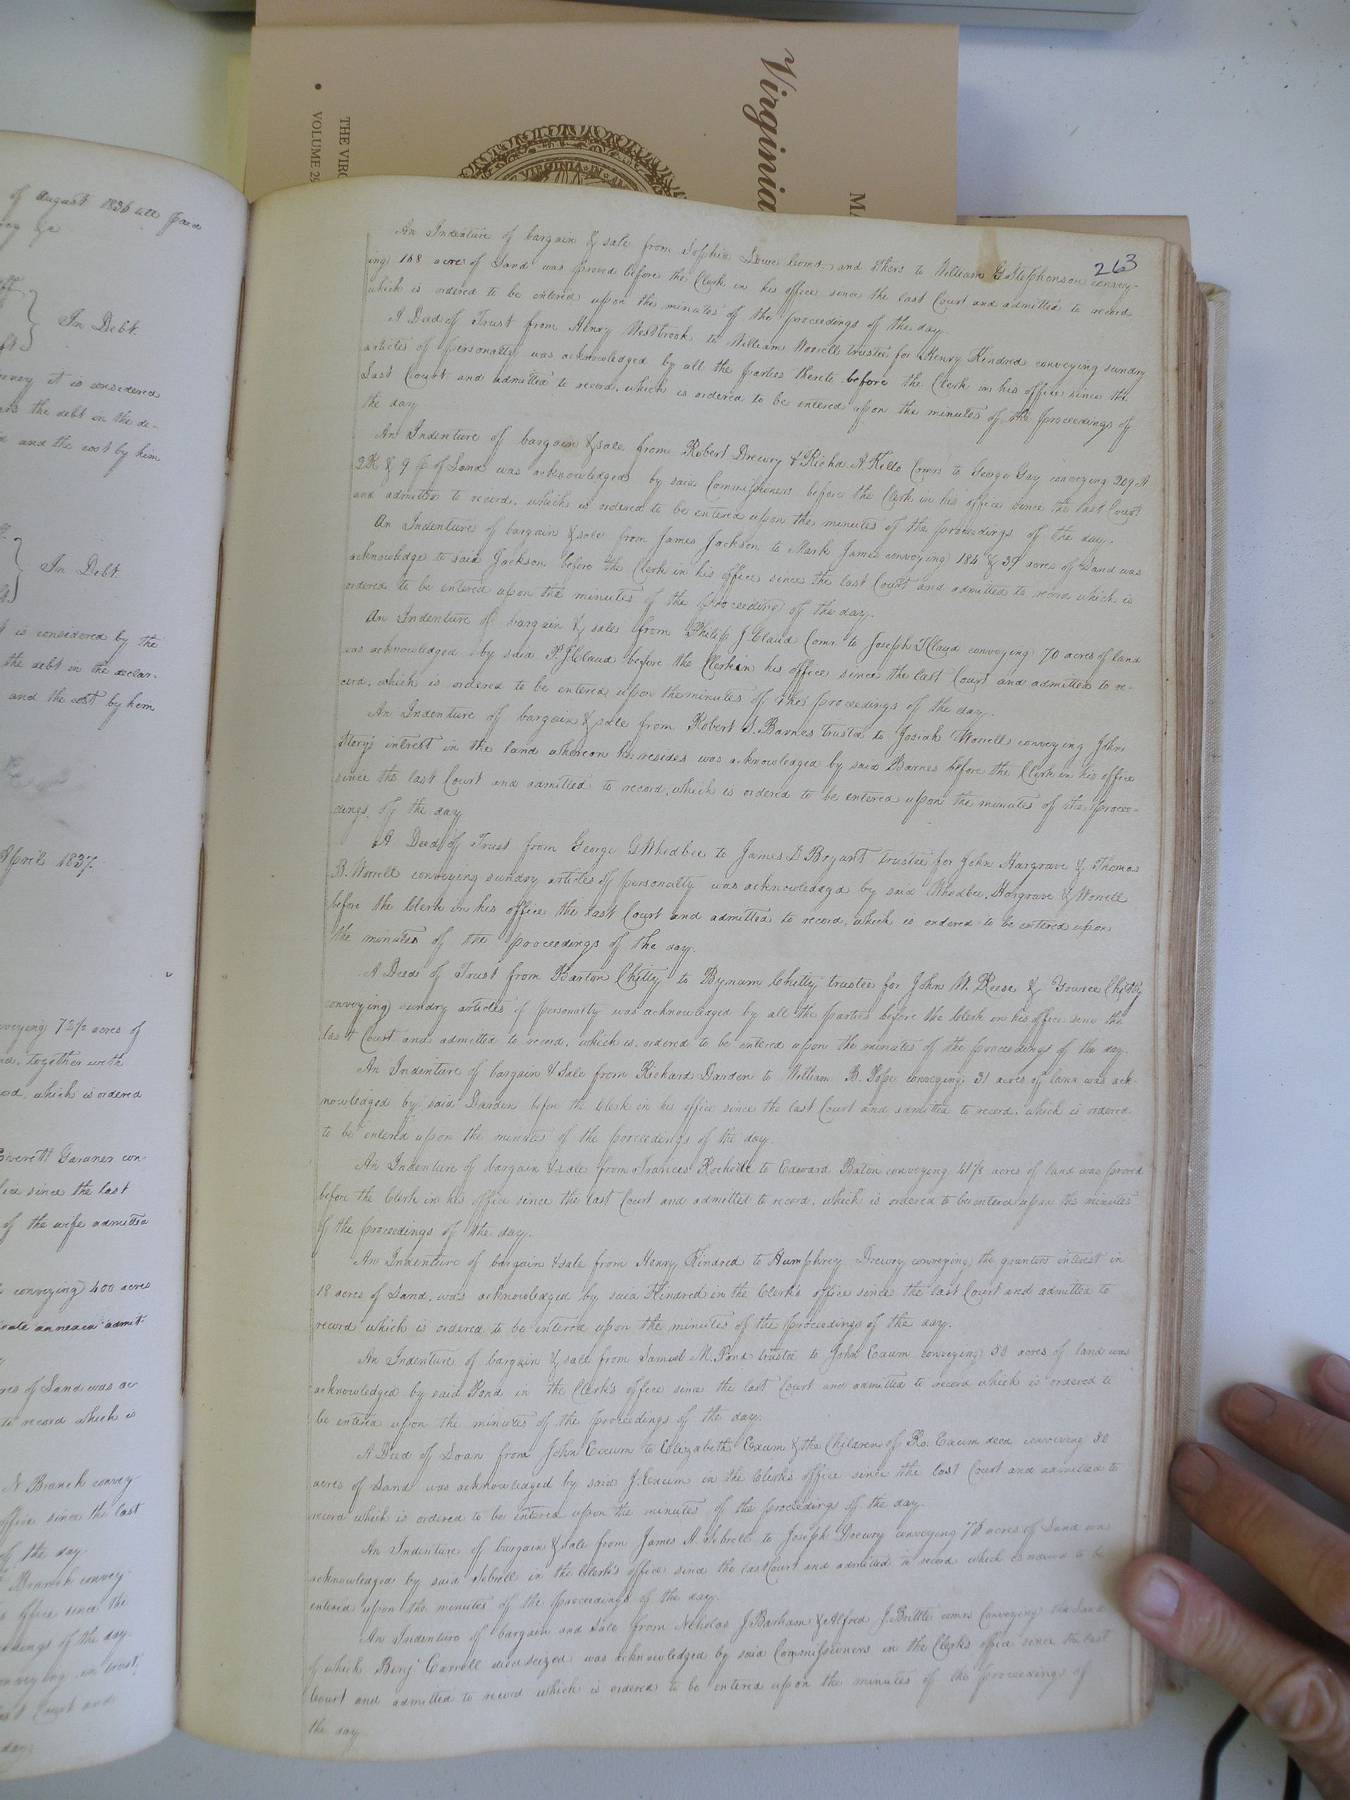 Virginia
THE VIRG
VOLUME 29
MA
VIRGINIA IN
263
of August 1836 till paid
In Debt.
money it is considered
the debt in the de-
and the cost by him
In Debt.
it is considered by the
the debt in the declar-
and the cost by him
April 1837.
conveying 75½ acres of
together with
which is ordered
Everett Gardner con-
since the last
of the wife admitted
conveying 400 acres
annexed admit-
acres of Land was ac
to record which is
N Branch convey-
office since the last
of the day.
Branch convey-
office since the
of the day.
conveying in trust
Court and
day.
An Indenture of bargain & sale from Sophia and others to William G Stephenson convey-
ing 168 acres of Land was proved before the Clerk in his office since the last Court and admitted to record
which is ordered to be entered upon the minutes of the proceedings of the day.
A Deed of Trust from Henry Westbrook to William Worrell trustee for Henry Kindred conveying sundry
articles of personalty was acknowledged by all the parties thereto before the Clerk in his office since the
Last Court and admitted to record, which is ordered to be entered upon the minutes of the proceedings of
the day
An Indenture of bargain & sale from Robert Drewry & Richd A Kello Comrs to George Gay conveying 209 A
2R & 9 p of Land was acknowledged by said Commissioners before the Clerk in his office since the last Court
and admitted to record, which is ordered to be entered upon the minutes of the proceedings of the day.
An Indenture of bargain & sale from James Jackson to Mark James conveying 184 & 37 acres of Land was
acknowledge to said Jackson before the Clerk in his office since the last Court and admitted to record which is
ordered to be entered upon the minutes of the proceedings of the day.
An Indenture of bargain & sale from Philip J Claud Comr to Joseph T Claud conveying 70 acres of land
was acknowledged by said P. J Claud before the Clerk in his office since the last Court and admitted to re-
cord, which is ordered to be entered upon the minutes of the proceedings of the day.
An Indenture of bargain & sale from Robert S. Barnes trustee to Josiah Worrell conveying John
Story's intrest in the land whereon he resides was acknowledged by said Barnes before the Clerk in his office
since the last Court and admitted to record, which is ordered to be entered upon the minutes of the procee-
dings of the day
A Deed of Trust from George G Whedbee to James D Bryant trustee for John Hargrave & Thomas
B. Worrell conveying sundry articles of personalty was acknowledged by said Whedbee, Hargrave & Worrell
before the Clerk in his office the last Court and admitted to record, which is ordered to be entered upon
the minutes of the proceedings of the day.
A Deed of Trust from Barton Chitty to Bynum Chitty trustee for John W. Reese & Chitty
conveying sundry articles of personalty was acknowledged by all the parties before the Clerk in his office since the
last Court and admitted to record, which is ordered to be entered upon the minutes of the proceedings of the day.
An Indenture of bargain & Sale from Richard Darden to William B. Pope conveying 31 acres of land was ack-
nowledged by said Darden before the Clerk in his office since the last Court and admitted to record, which is ordered
to be entered upon the minutes of the proceedings of the day.
An Indenture of bargain & sale from Frances Rochelle to Edward Baton conveying 41⅞ acres of land was proved
before the Clerk in his office since the last Court and admitted to record, which is ordered to be entered upon the minutes
of the proceedings of the day.
An Indenture of bargain & sale from Henry Kindred to Humphrey Drewry conveying the grantors interest in
18 acres of Land, was acknowledged by said Kindred in the Clerk's office since the last Court and admitted to
record which is ordered to be entered upon the minutes of the proceedings of the day.
An Indenture of bargain & sale from Samuel M. Pond trustee to John Exum conveying 50 acres of land was
acknowledged by said Pond in the Clerk's office since the last Court and admitted to record which is ordered to
be entered upon the minutes of the proceedings of the day.
A Deed of Loan from John Exum to Elizabeth Exum & the Children of Ro. Exum decd conveying 30
acres of Land was acknowledged by said J. Exum in the Clerk's office since the last Court and admitted to
record which is ordered to be entered upon the minutes of the proceedings of the day.
An Indenture of bargain & sale from James A. Sebrell to Joseph Drewry conveying 76 acres of Land was
acknowledged by said Sebrell in the Clerk's office since the last Court and admitted to record which is ordered to be
entered upon the minutes of the proceedings of the day.
An Indenture of bargain and sale from Nicholas J. Barham & Alfred J. Brittle comrs conveying the Land
of which Benj Carrell died seized was acknowledged by said Commissioners in the Clerk's office since the last
Court and admitted to record which is ordered to be entered upon the minutes of the proceedings of
the day